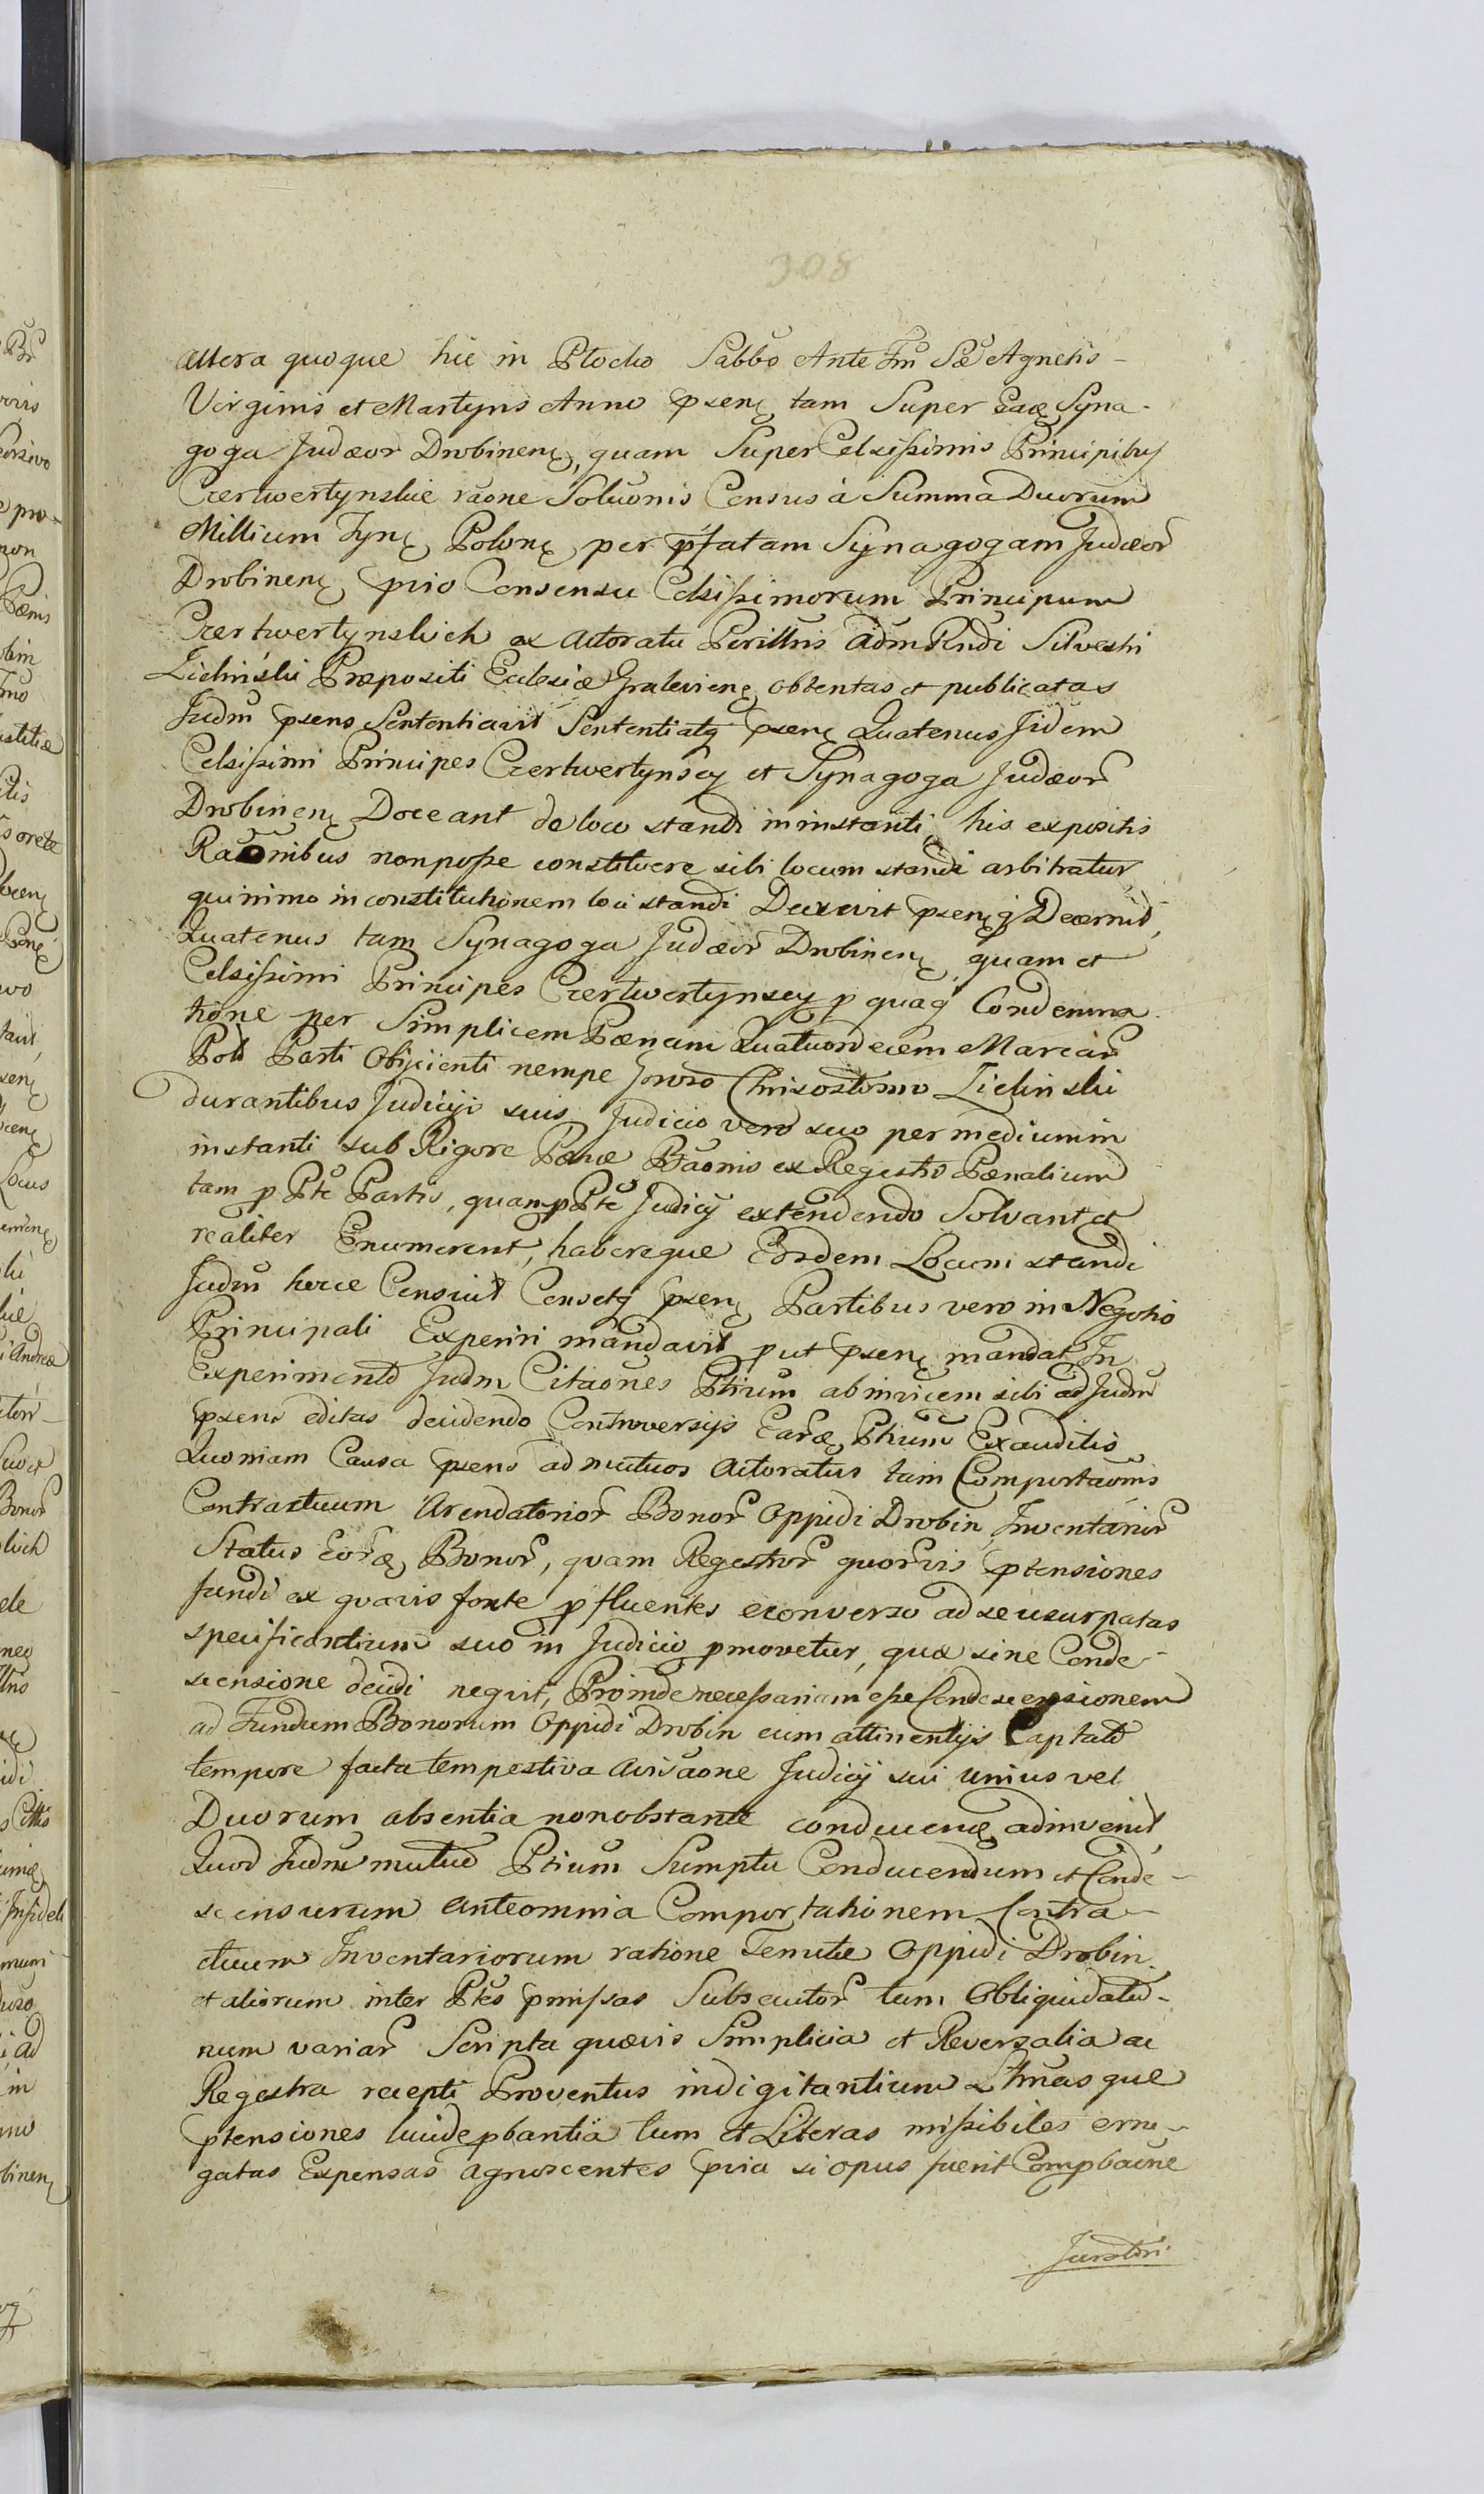 308
altera quoque hic in Plocko Sabbo Ante Fm Sae Agnetis -
Virginis et Martyris Anno psenę tam Super Eadę Syna-
goga Judæor Drobinenę, quam Super Celsissimis Principibus
Czertwertynskie raone Soluonis Census à Summa Duorum
Millium Fynę Polonę per pfatam Synagogam Judæor
Drobinenę prio Consensu Celsissimorum Principum
Czertwertynskich ex Actoratu Perillris Adm Rndi Silvestri
Zielinski Præpositi Ecclesiæ Gralevienę obtentas et publicatas
Judm psens Sententiavit Sententiatq psenę Quatenus Jidem
Celsissimi Principes Czertwertynscy et Synagoga Judæor
Drobinenę Doceant de loco standi in instanti, his expositis
Raonibus non posse constituere sibi locum standi arbitratur,
quinimo in constitutionem loci standi Decrevit psenęq Decernit,
Quatenus tam Synagoga Judæor Drobinenę quam et
Celsissimi Principes Czertwertynscy p quaq Condemna-
tione per Simplicem Pænam Quatuordecem Marcar
Pol Parti Objicienti nempe Gnoso Chrisostomo Zielinski
durantibus Judicijs suis Judicio vero suo per medium in
instanti sub Rigore Pænæ Ptaonis ex Regestro Pænalium
tam p Pte Partis, quam p Pte Judicij extendendo Solvant et
realiter Enumerent, habereque Eosdem Locum standi
Judm hocce Censuit Censetq psenę Partibus vero in Negotio
Principali Experiri mandavit put psenę mandat In
Experimento Judm Citaones Ptium ab invicem sibi ad Judm
psens editas decidendo Controversijs Earę Ptium Exauditis
Quoniam Causa psens ad mutuos Actoratus tam Comportaonis
Contractuum Arendatorior Bonor Oppidi Drobin, Inventarior
Status Eorę Bonor, quam Regestror quorvis ptensiones
fundi ex quavis fonte pfluentes econverso ad se usurpatas
specificantium suo in Judicio pmovetur, quæ sine Conde-
scensione decidi nequit, Proinde necessariam esse Condescensionem
ad Fundum Bonorum Oppidi Drobin cum attinentijs Captato
tempore facta tempestiva avisaone Judicij sui unius vel
Duorum absentia nonobstante conducenę adinvenit,
Quod Judm mutuo Ptium Sumptu Conducendum et Conde-
scensurum ante omnia Comportationem Contra-
ctuum Inventariorum ratione Tenutæ Oppidi Drobin
et aliorum inter Ptes pmissas Subsecutor tum Obliquidatio-
num variar Scripta quævis Simplicia et Reversalia ac
Regestra recepti Proventus indigitantium
ptensiones lucide pbantia tum et Literas missibiles erro-
gatas Expensas agnoscentes pvia si opus fuerit Compbaone
Juratori